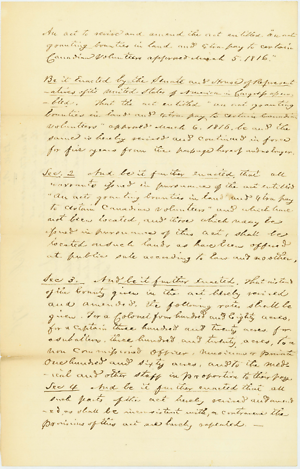 An act to revive and amend the act entitled "An act
granting bounties in land and extra pay to certain
Canadian Volunteers approved March 5. 1816."
Be it enacted by the Senate and House of Represent
atives of the United States of America in Congress assem
bled. That the act entitled "an act granting
bounties in land and extra pay to certain Canadian
Volunteers" approved March 5. 1816, be and the
same is hereby revived and continued in force
for five years from the passage hereof and no longer.
Sec. 2 And be it further enacted that all
warrants issued in pursuance of the act entitled
"An act granting bounties in land and extra pay
to certain Canadian volunteers" and which have
not been located and those which may be
issued in pursuance of this act, shall be
located on such lands as have been offered
at public sale according to law and no other.
Sec 3. And be it further enacted, That instead
of the bounty given in the act hereby revived
and amended, the following rates shall be
given. To a Colonel four hundred and eighty acres,
to a Captain three hundred and twenty acres to a
subaltern, three hundred and twenty acres, to a
non Commissioned officer, musician or private
One hundred and sixty acres, and to the med
ical and other staff in proportion to their pay.
Sec 4 And be it further enacted that all
such parts of the act hereby revived and amend
ed as shall be inconsistent with, or contravene the
provisions of this act are hereby repealed.